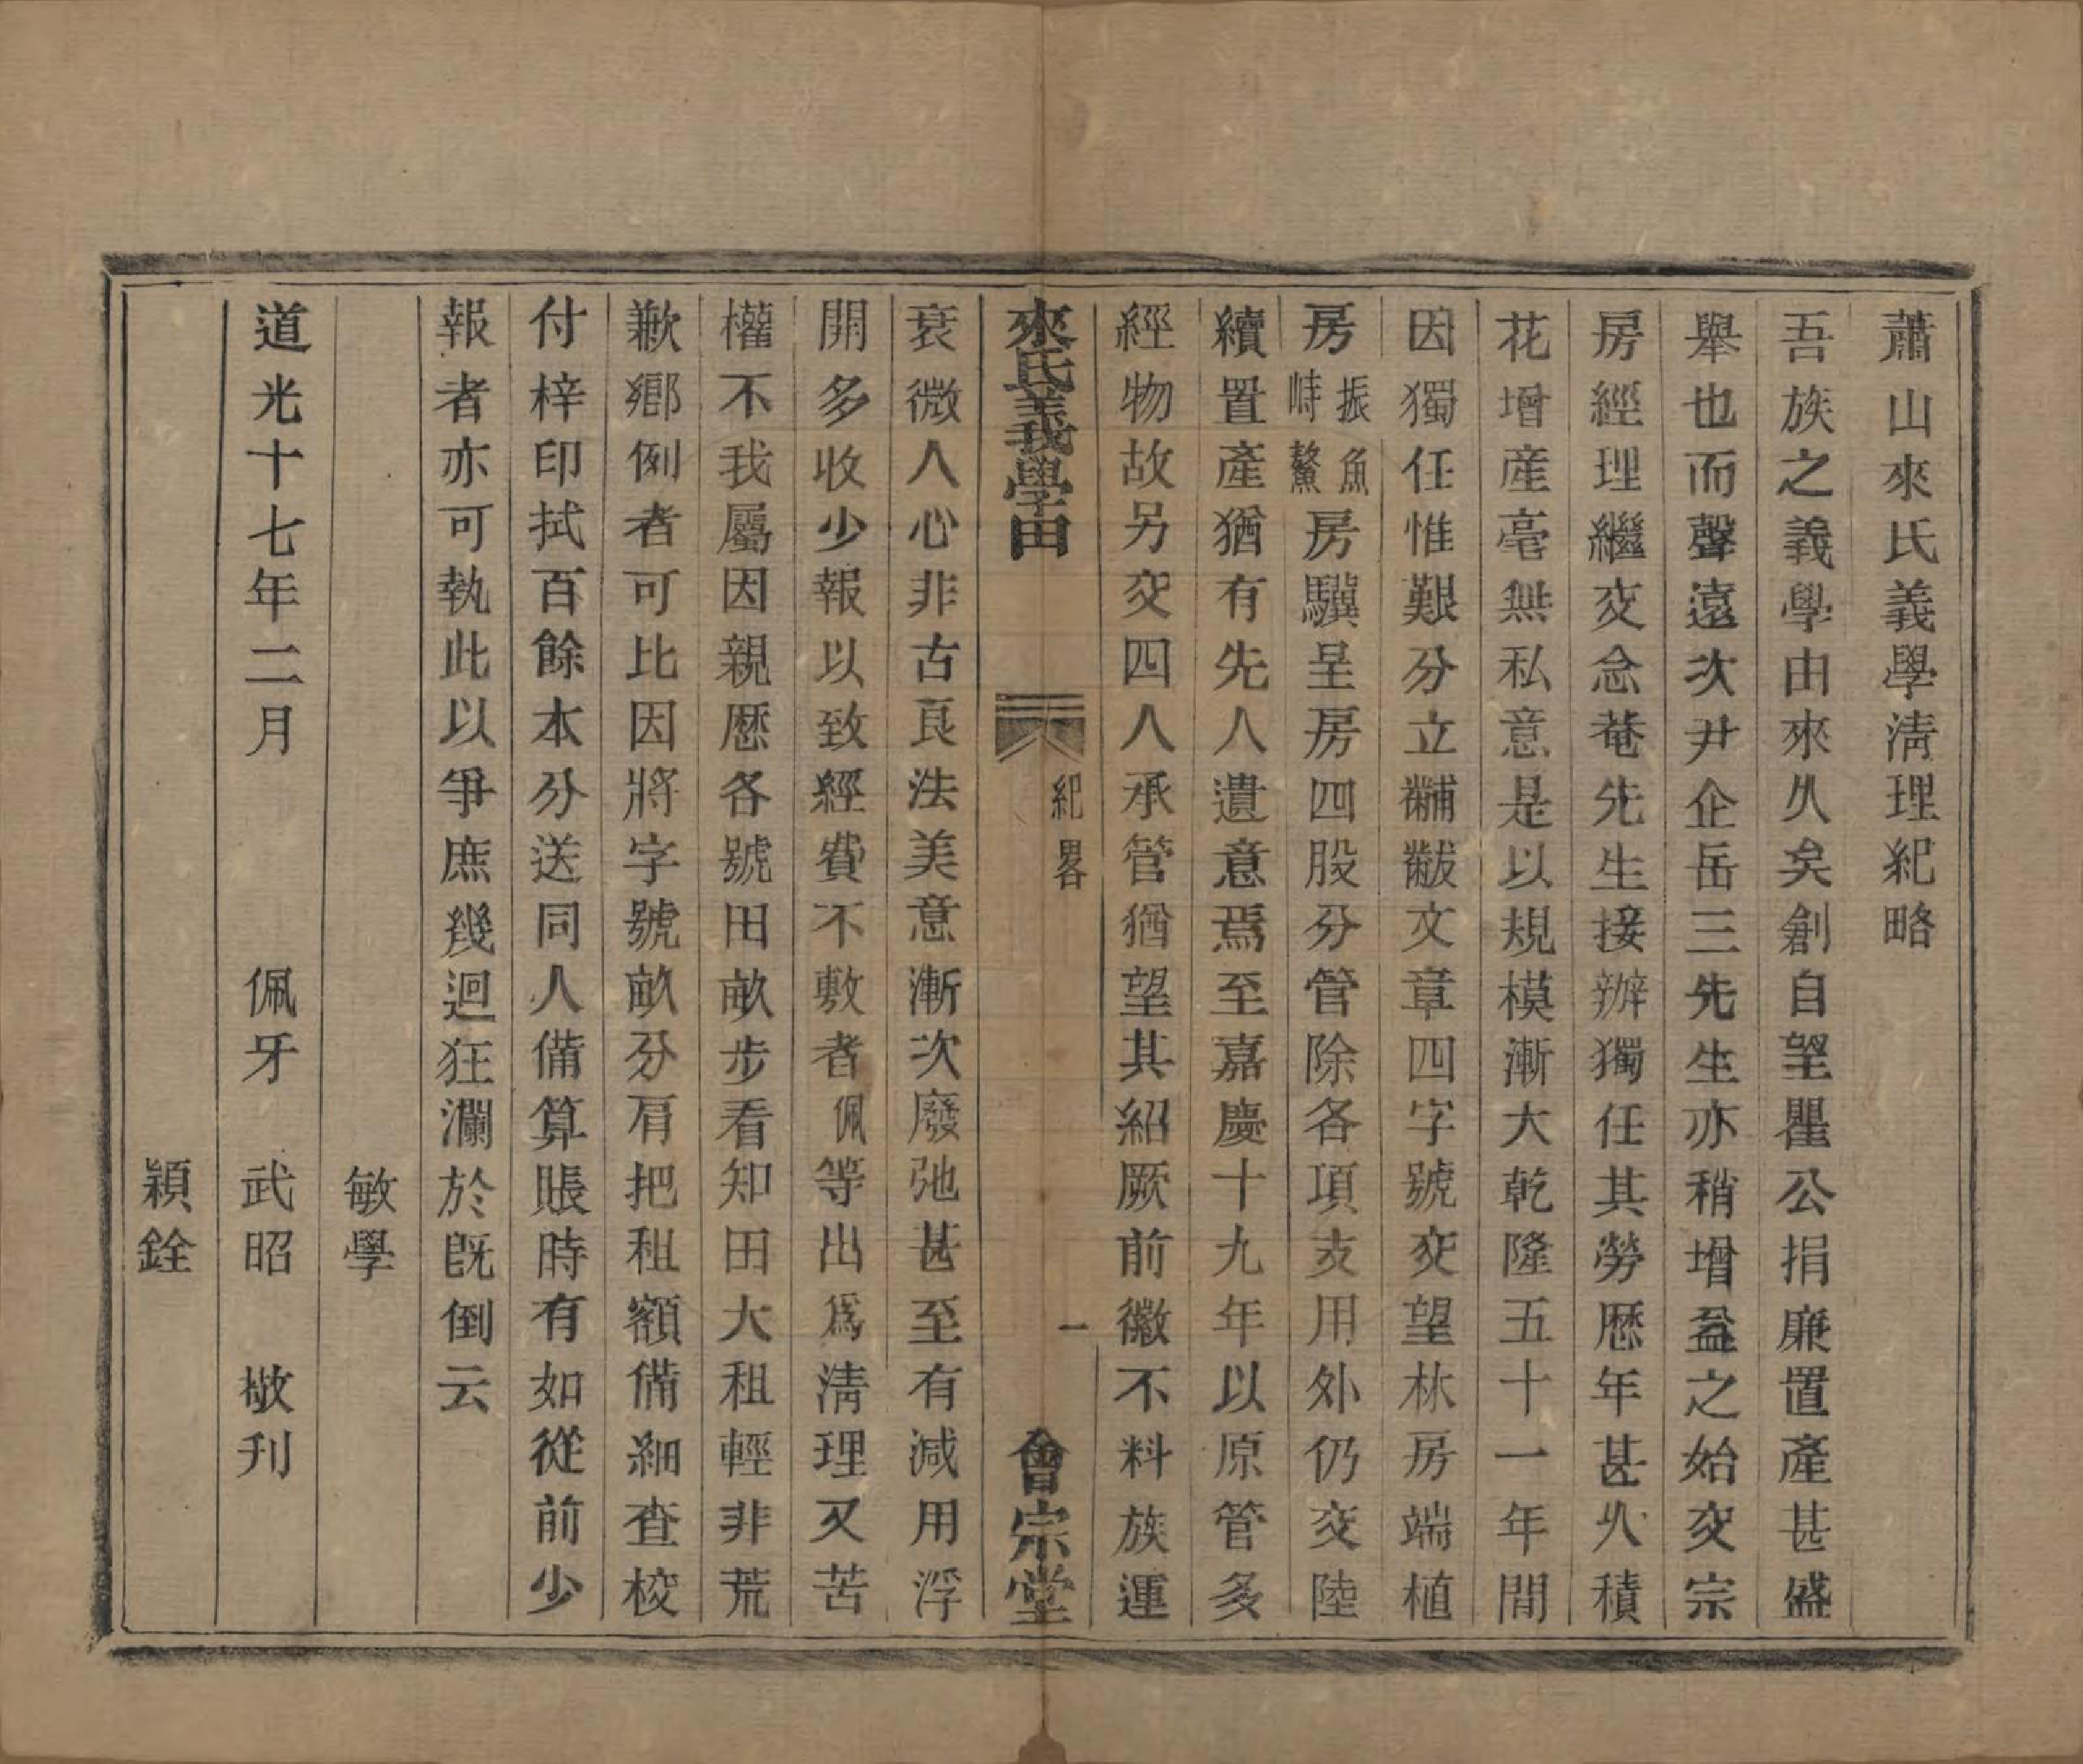 蕭山來氏義學淸理紀略
吾族之義學由來乆矣創自望瞿公捐廉置產甚盛
舉也而聲遠次尹企岳三先生亦稍增益之始交宗
房經理繼交念菴先生接辦獨任其勞歷年甚乆積
花增產毫無私意是以規模漸大乾隆五十一年間
因獨任惟艱分立黼黻文章四字號交望林房端植
房振魚峙鰲房驥呈房四股分管除各項支用外仍交陸
續置產猶有先人遺意焉至嘉慶十九年以原管多
經物故另交四人承管猶望其紹厥前徽不料族運
來氏義學田 紀畧 一 會宗堂
衰微人心非古良法美意漸次廢弛甚至有減用浮
開多收少報以致經費不敷者佩等出爲淸理又苦
權不我屬因親歷各號田畝步看知田大租輕非荒
歉鄉例者可比因將字號畝分肩把租額備細查校
付梓印拭百餘本分送同人備算賬時有如從前少
報者亦可執此以爭庶幾迴狂瀾於旣倒云
敏學
道光十七年二月 佩牙 武昭 敬刋
穎銓